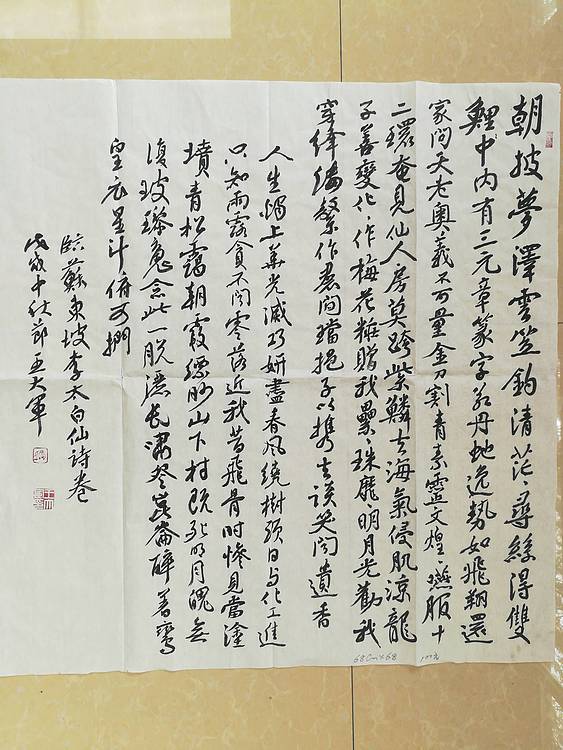 朝披夢澤雲笠釣清茫々尋絲得雙
鯉中内有三元章篆字若丹虵逸勢如飛翔還
家问天老奥義不可量金刀割青素靈文煌々嚥服十
二環奄見仙人房莫跨紫鱗去海氣侵肌涼龍
子善變化々作梅花粧贈我纍々珠靡々明月光勸我
穿絳繋作裙间璫挹子以携去谈笑闻遺香
人生燭上華光滅巧妍盡春風繞樹頭日与化工進
只知雨露貪不闻零落近我昔飛骨时惨見當塗
墳青松靄朝霞縹眇山下村既死明月魄無
復玻瓈魂念此一脱灑长嘯登崑崙醉著鸞
皇衣星斗俯可捫
临蘇東坡李太白仙诗卷
戊戌中秋節王大軍
68Cm×68